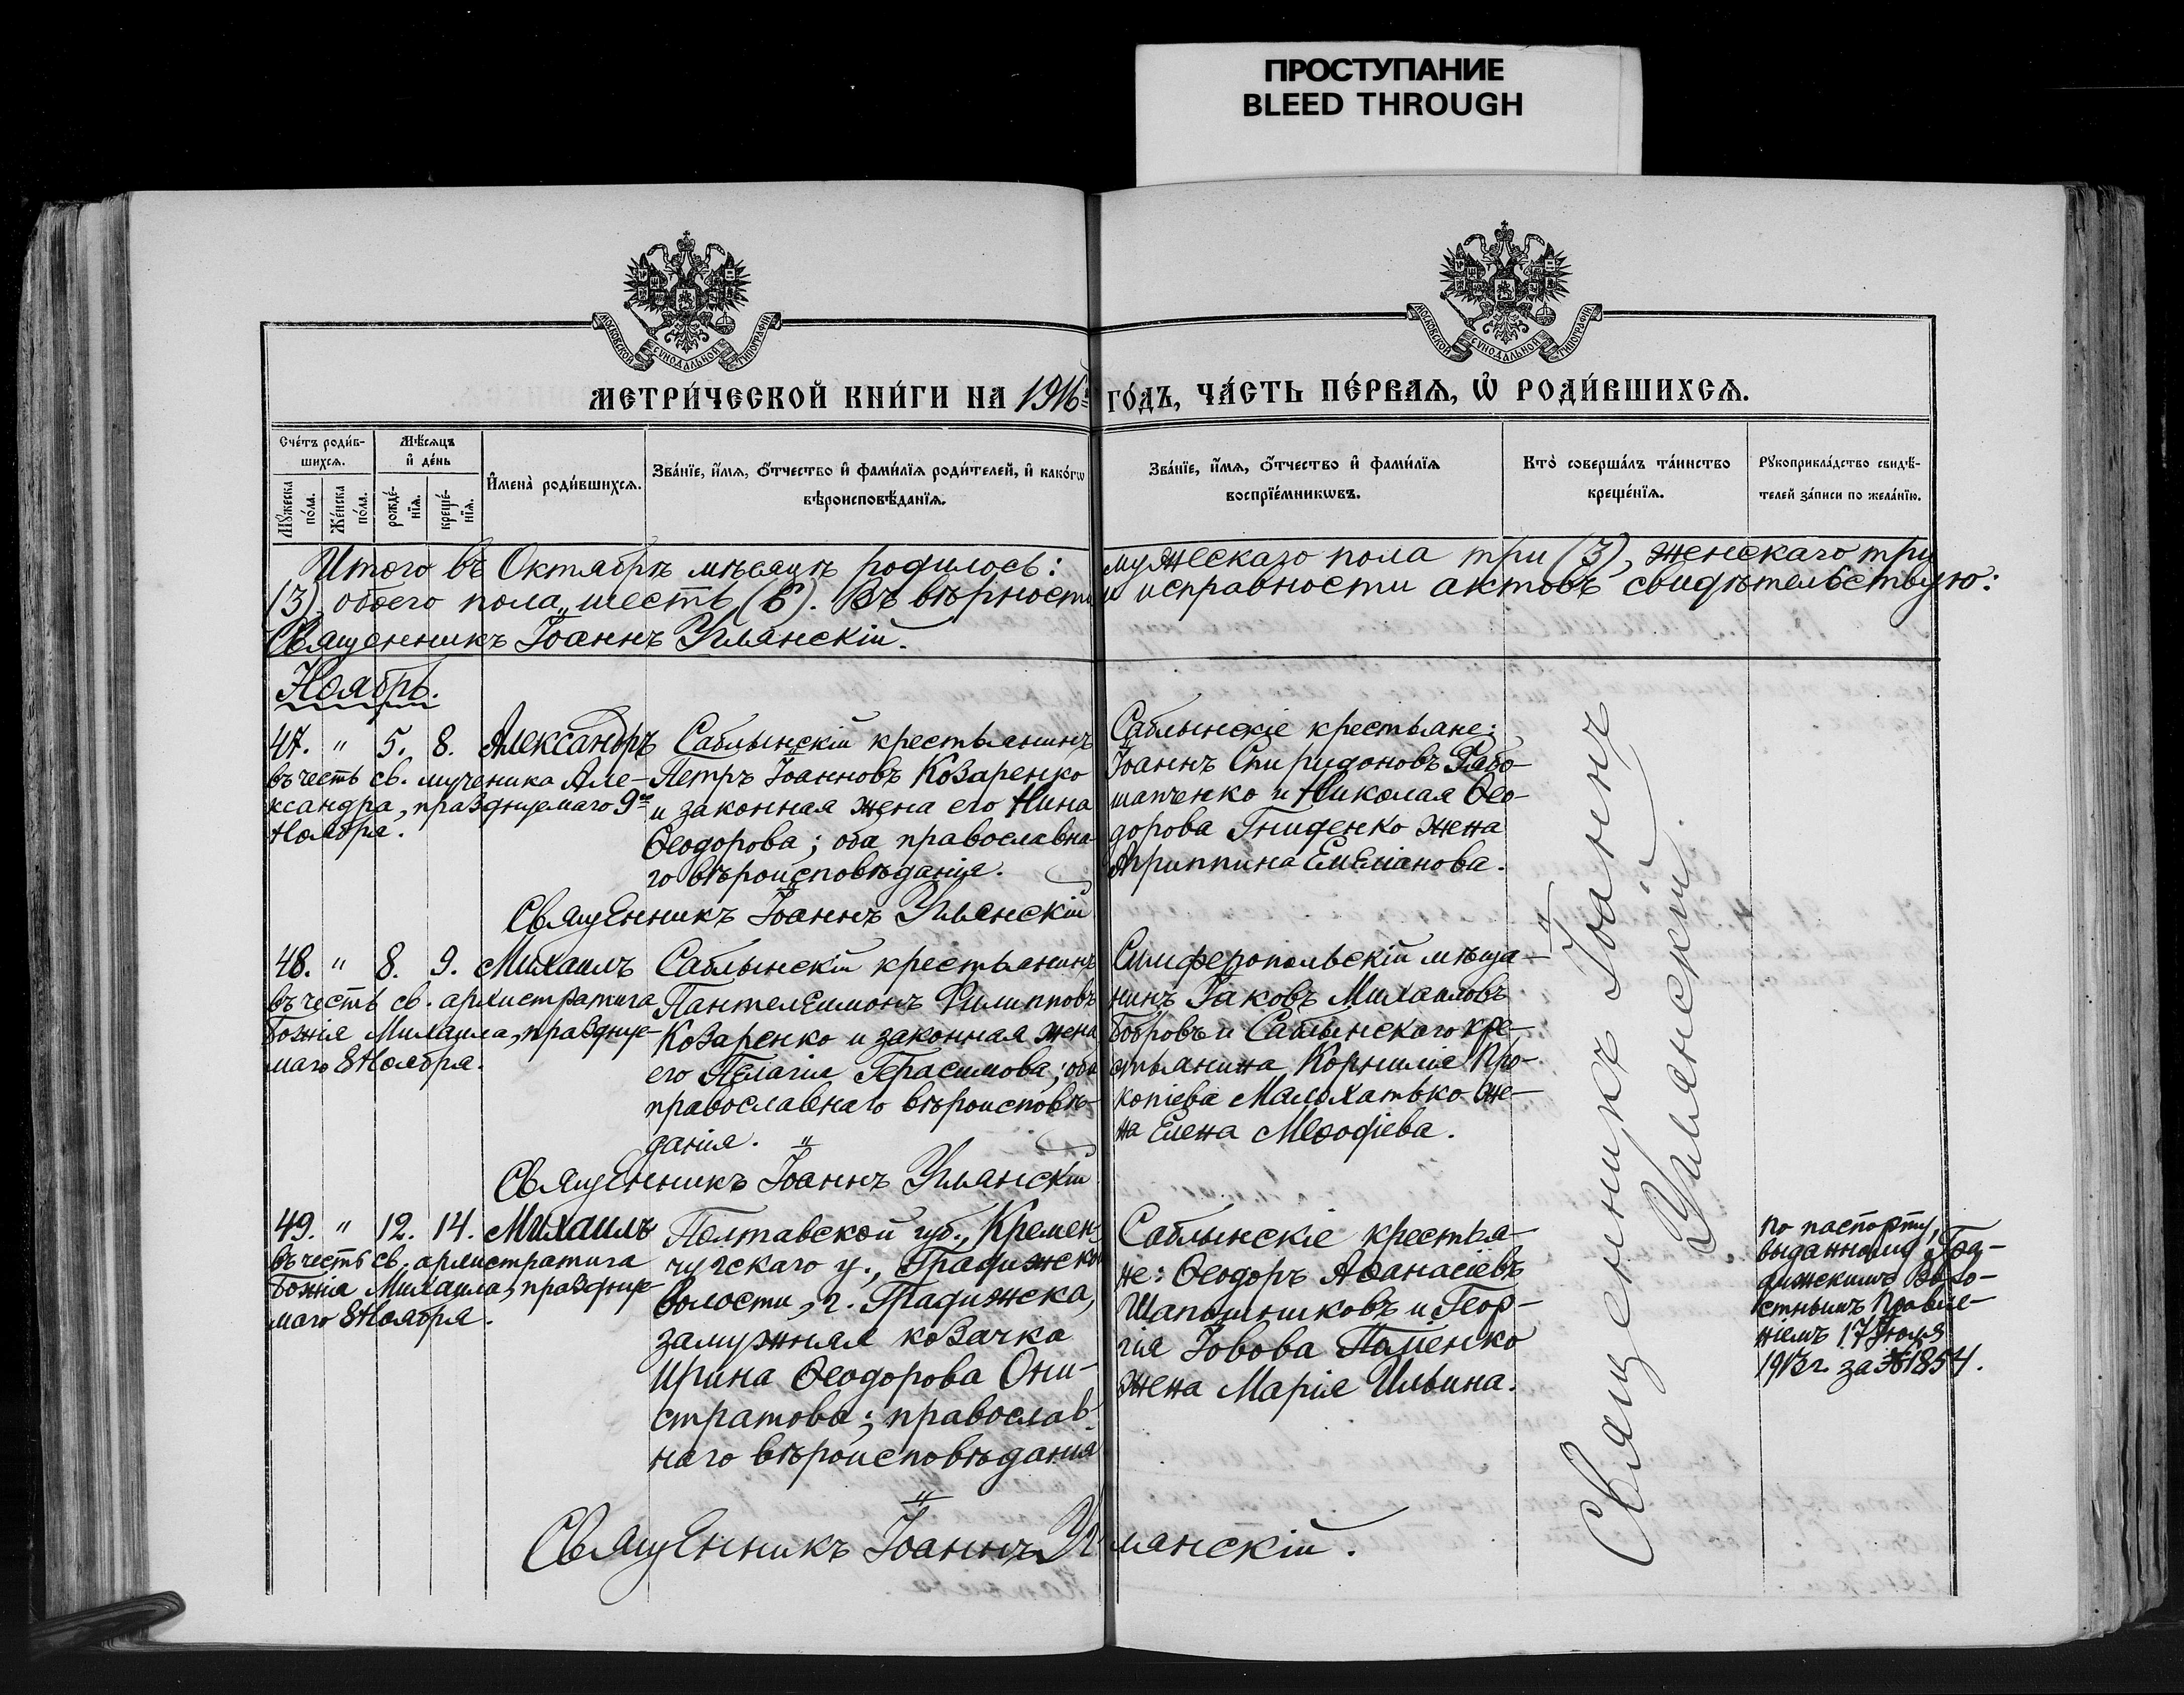 ПРОСТУПАНИЕ
BLEED THROUGH
МОСКОВСКОЙ СѴНОДАЛЬНОЙ ТИПОГРАФІИ
МОСКОВСКОЙ СѴНОДАЛЬНОЙ ТИПОГРАФІИ
МЕТРИ́ЧЕСКОЙ КНИ́ГИ НА 1916й ГО́ДЪ, ЧА́СТЬ ПЕ́РВАѦ, Ѽ РОДИ́ВШИХСѦ.
Сче́тъ роди́в-
шихсѧ.
Мꙋ́жеска по́ла.
Же́нска по́ла.
Мѣ́сѧцъ
и҆ де́нь
рожде́-
нїѧ.
креще́-
нїѧ.
И҆мена̀ роди́вшихсѧ.
Зва́нїе, и҆́мѧ, ѻ҆́тчество и҆ фами́лїѧ роди́телей, и҆ како́гѡ
вѣроисповѣ́данїѧ.
Зва́нїе, и҆́мѧ, ѻ҆́тчество и҆ фами́лїѧ
воспрїе́мникѡвъ.
Кто̀ соверша́лъ та́инство
креще́нїѧ.
Рꙋкоприкла́дство свидѣ́-
телей за́писи по жела́нїю.
Итого въ Октябрѣ мѣсяцѣ родилось: мужескаго пола три (3), женскаго три
(3), обоего пола „шесть (6). Въ вѣрности и исправности актовъ свидѣтельствую:
Священникъ Іоаннъ Углянскій.
Ноябрь.
47. " 5. 8. Александръ
въ честь св. мученика Але-
ксандра, празднуемаго 9го
Ноября.
Саблынскій крестьянинъ
Петръ Іоанновъ Козаренко
и законная жена его Нина
Ѳеодорова; оба православна-
го вѣроисповѣданія.
Саблынскіе крестьяне:
Іоаннъ Спиридоновъ Рябо-
шапченко и Николая Ѳео-
дорова Гниденко жена
Агриппина Емеліанова.
Священникъ Іоаннъ Углянскій
48. " 8. 9. Михаилъ
въ честь св. архистратига
Божія Михаила, празднуе-
маго 8 Ноября.
Саблынскій крестьянинъ
Пантелеимонъ Филипповъ
Козаренко и законная жена
его Пелагія Герасимова; оба
православнаго вѣроисповѣ-
данія. "
Симферопольскій мѣща-
нинъ Іаковъ Михаиловъ
Бобровъ и Саблынскаго кре-
стьянина Корнилія Про-
копіева Малохатько же-
на Елена Меѳодіева.
Священникъ Іоаннъ Углянскій
49. " 12. 14. Михаилъ
въ честь св. архистратига
Божія Михаила, празднуе-
маго 8 Ноября.
Полтавской губ., Кремен-
чугскаго у., Градижской
волости, г. Градижска,
замужняя козачка
Ирина Ѳеодорова Они-
стратова; православ-
наго вѣроисповѣданія
"
Саблынскіе крестья-
не: Ѳеодоръ Аѳанасіевъ
Шапошниковъ и Геор-
гія Іовова Паліенко
жена Марія Ильина.
По паспорту,
выданному Гра-
дижскимъ Воло-
стнымъ Правле-
ніемъ 17 Іюля
1913 г. за № 1854.
Священникъ Іоаннъ Углянскій.
Священникъ Іоаннъ
Углянскій.